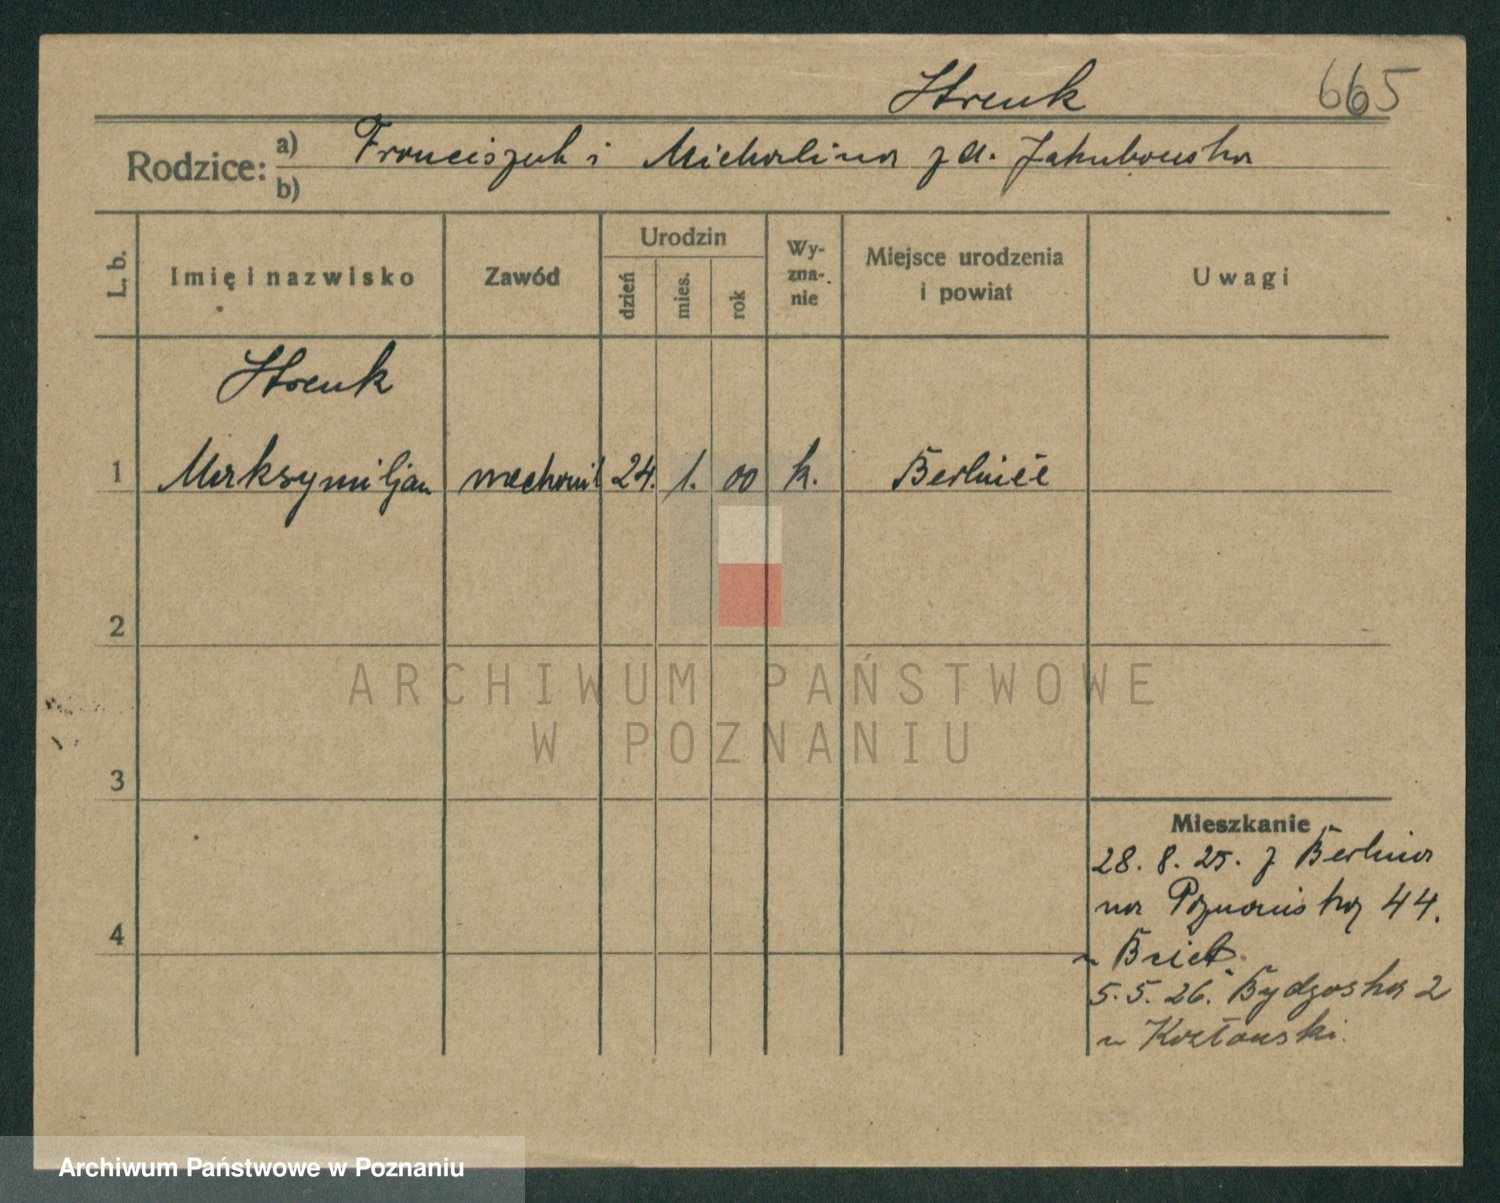 665
Strenk
Rodzice: a) Franciszek i Michalina zd. Jakubowska
b)
L. b.
Imię i nazwisko
Zawód
Urodzin
dzień
mies.
rok
Wy-
zna-
nie
Miejsce urodzenia
i powiat
Uwagi
Strenk
1 Maksymiljan mechanik 24. 1. 00 k. Berlinie
2
3
4
Mieszkanie
28. 8. 25. z Berlina
na Poznańską 44.
5. 5. 26. Bydgoska 2
ARCHIWUM PAŃSTWOWE
W POZNANIU
Archiwum Państwowe w Poznaniu